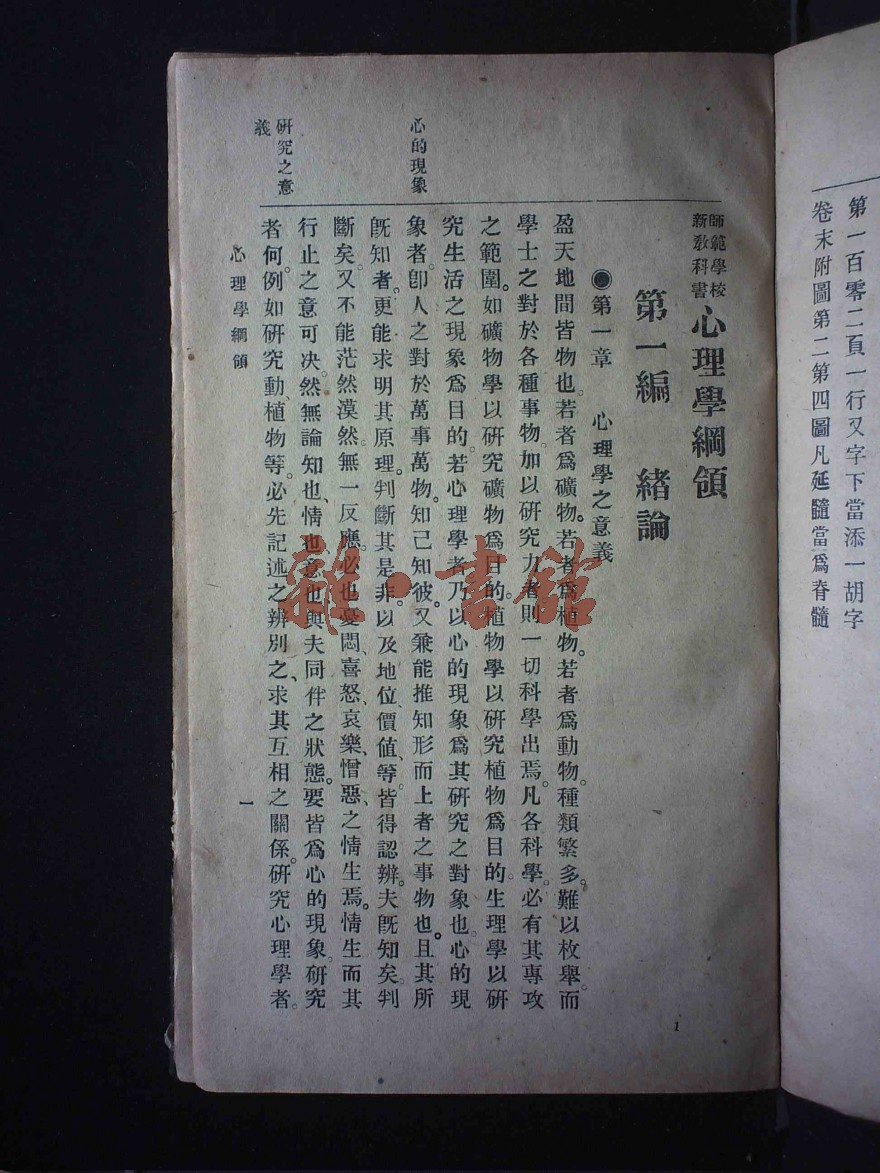 第一百零二頁一行又字下當添一胡字
卷末附圖第二第四圖凡延髓當爲脊髓
師範學校
新教科書
心理學綱領
第一編 緒論
●第一章 心理學之意義
盈天地間皆物也。若者爲礦物。若者爲植物。若者爲動物。種類繁多。難以枚舉。而
學士之對於各種事物。加以研究力者。則一切科學出焉。凡各科學。必有其專攻
之範圍。如礦物學以研究礦物爲目的。植物學以研究植物爲目的。生理學以研
究生活之現象爲目的。若心理學者。乃以心的現象爲其研究之對象也。心的現
象者。卽人之對於萬事萬物。知己知彼。又兼能推知形而上者之事物也。且其所
旣知者。更能求明其原理。判斷其是非。以及地位、價値、等。皆得認辨。夫旣知矣。判
斷矣。又不能茫然漠然。無一反應。必也憂悶、喜怒、哀樂、憎惡、之情生焉。情生而其
行止之意可決。然無論知也、情也、意也、與夫同伴之狀態。要皆爲心的現象。研究
者何。例如研究動、植物等。必先記述之、辨別之、求其互相之關係。研究心理學者。
心的現象
研究之意
義
心理學綱領
一
1
雜·書館